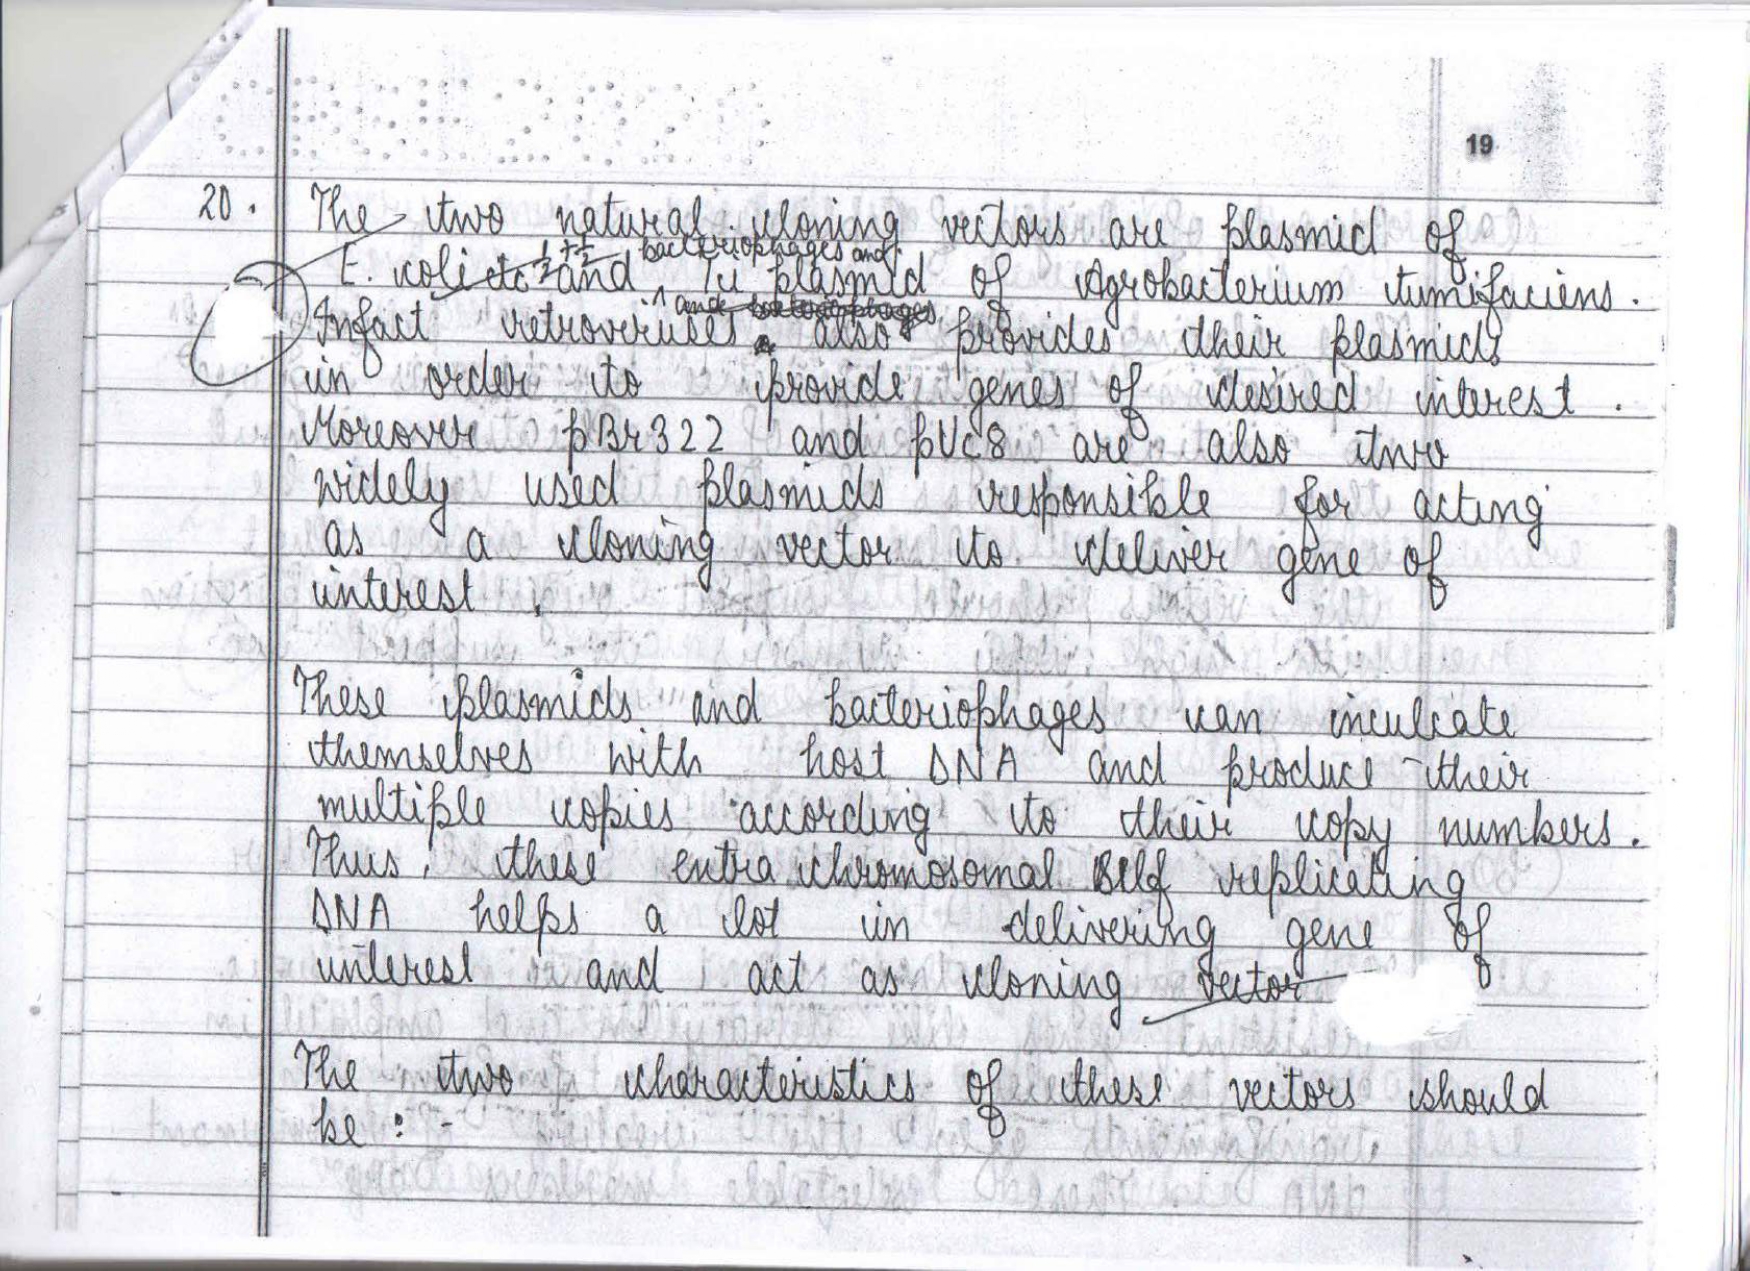 19
20. The two natural cloning vectors are plasmid of
E. coli etc ½+½ and bacteriophages and Ti plasmid of Agrobacterium tumifaciens.
Infact retroveruses also provides their plasmids
in order to provide genes of desired interest.
Moreover pBr322 and pUc8 are also two
widely used plasmids responsible for acting
as a cloning vector to deliver gene of
interest.
These plasmids and bacteriophages can inculcate
themselves with host DNA and produce their
multiple copies according to their copy numbers.
Thus, these extra chromosomal self replicating
DNA helps a lot in delivering gene of
interest and act as cloning vector
The two characteristics of these vectors should
be :-